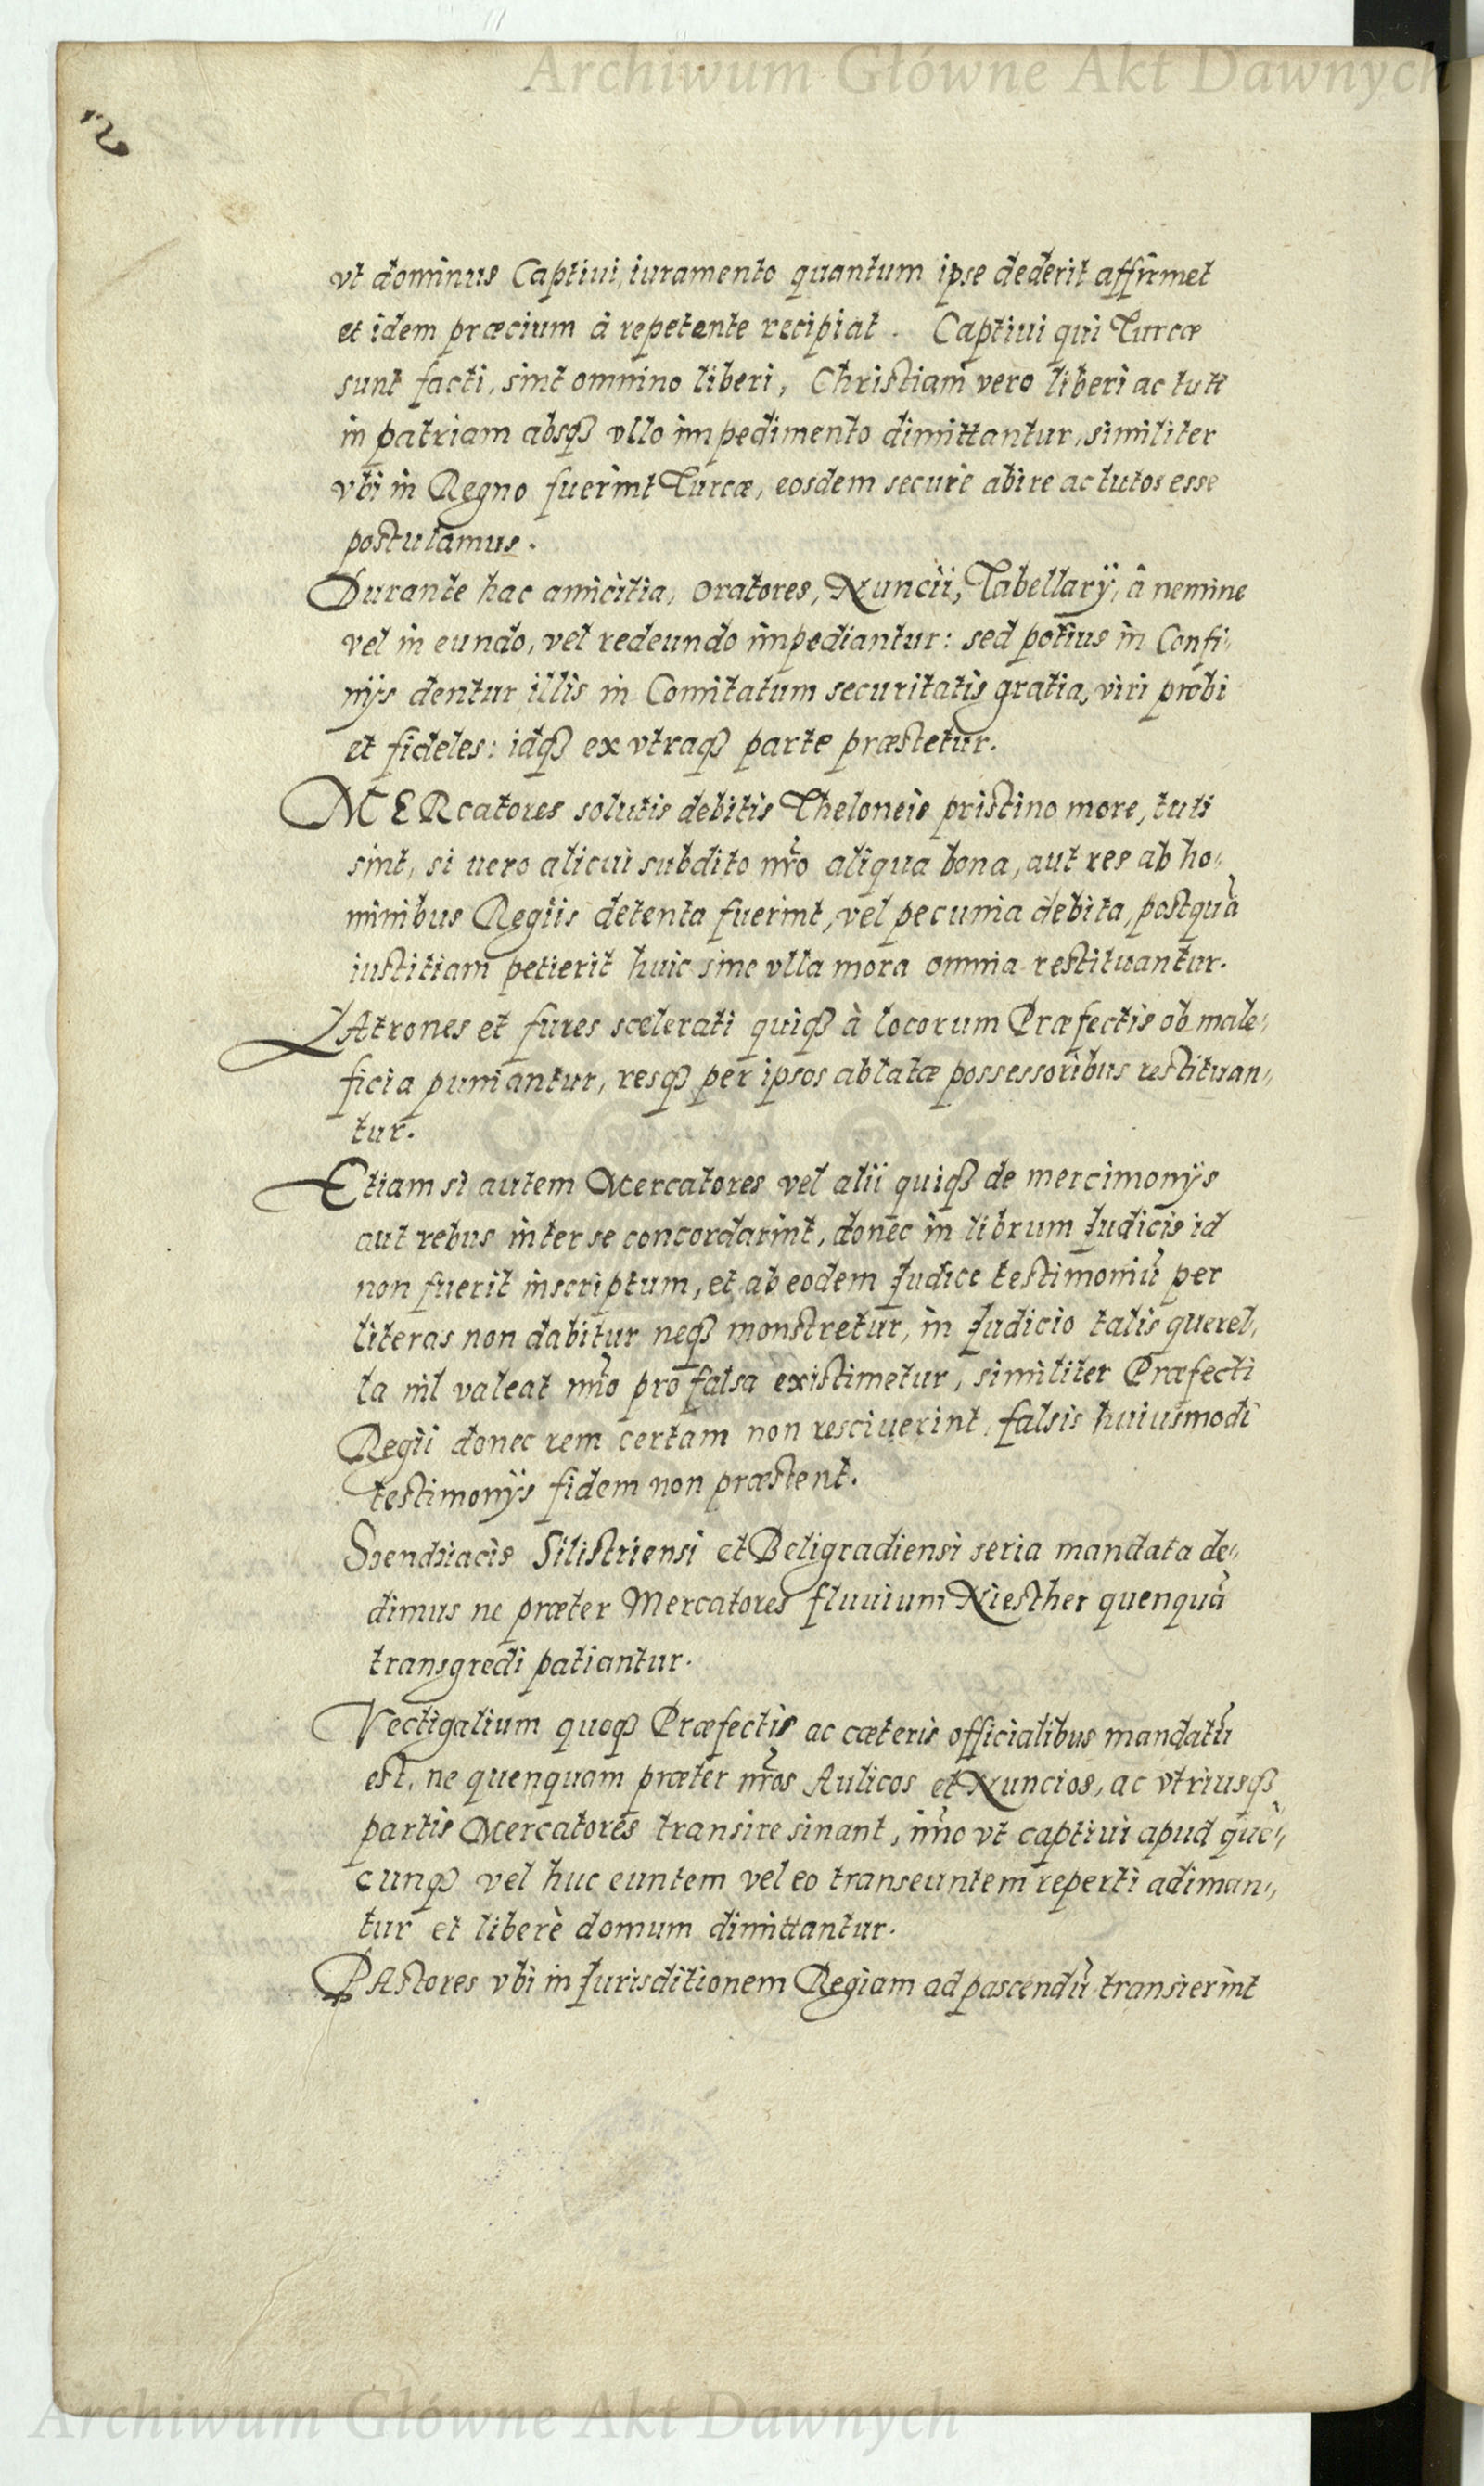 Archiwum Główne Akt Dawnych
vt dominus Captiui, iuramento quantum ipse dederit affirmet
et idem præcium à repetente recipiat. Captiui qui Turcæ
sunt facti, sint omnino liberi, Christiani vero liberi ac tuti
in patriam absqȝ vllo impedimento dimittantur, similiter
vbi in Regno fuerint Turcæ, eosdem securè abire ac tutos esse
postulamus.
Durante hac amicitia, Oratores, Nuncii, Tabellarij, à nemine
vel in eundo, vel redeundo impediantur: sed potius in Confi,
nijs dentur illis in Comitatum securitatis gratia, viri probi
et fideles: idqȝ ex vtraqȝ parte præstetur.
MERcatores solutis debitis Theloneis pristino more, tuti
sint, si uero alicui subdito nr̃o aliqua bona, aut res ab ho,
minibus Regiis detenta fuerint, vel pecunia debita, postquã
iustitiam petierit huic sine vlla mora omnia restituantur.
LAtrones et fures scelerati quiqȝ à locorum Præfectis ob male,
ficia puniantur, resqȝ per ipsos ablatæ possessoribus restituan,,
tur.
Etiam si autem Mercatores vel alii quiqȝ de mercimonijs
aut rebus inter se concordarint, donec in librum Iudicis id
non fuerit inscriptum, et ab eodem Iudice testimoniũ per
literas non dabitur neqȝ monstretur, in Iudicio talis querel,
la nil valeat im̃o pro falsa existimetur, similiter Præfecti
Regii donec rem certam non resciuerint, falsis huiusmodi
testimonijs fidem non præstent.
Sendziacis Silistriensi et Beligradiensi seria mandata de,,
dimus ne præter Mercatores fluuium Niesther quenquã
transgredi patiantur.
Vectigalium quoqȝ Præfectis ac cæteris officialibus mandatũ
est, ne quenquam præter nr̃os Aulicos et Nuncios, ac vtriusqȝ
partis Mercatores transire sinant, im̃o vt captiui apud quẽ,,
cunqȝ vel huc euntem vel eo transeuntem reperti adiman,,
tur et liberè domum dimittantur.
PAstores vbi in Iurisditionem Regiam ad pascendũ transierint
Archiwum Główne Akt Dawnych